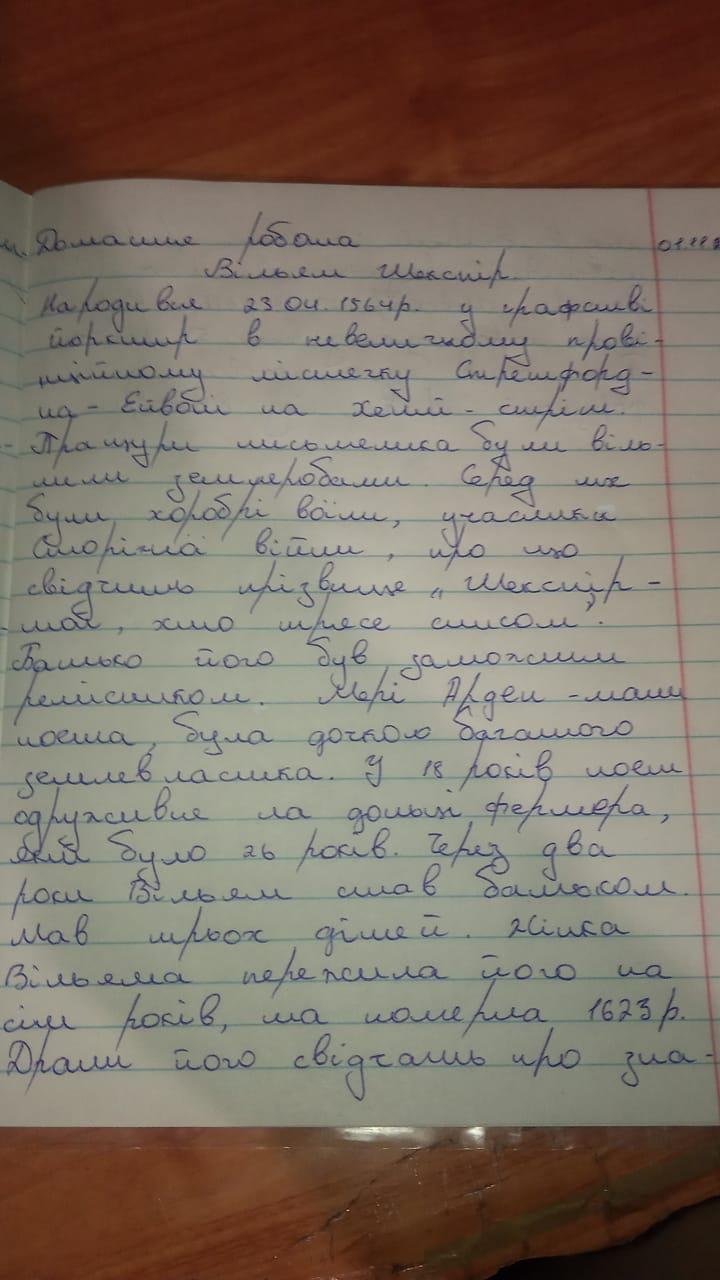 Домашня робота 01.11
Вільям Шекспір.
Народився 23.04.1564р. у графстві
Йоркшир в невеличкому прові-
нційному містечку Стретфорд-
на-Ейвоні на Хенлі-стріт.
Пращури письменника були віль-
ними землеробами. Серед них
були хоробрі воїни, учасники
Сторічної війни, про що
свідчить прізвище „Шекспір-
той, хто трясе списом".
Батько його був заможним
ремісником. Мері Арден - мати
поета, була дочкою багатого
землевласника. У 18 років поет
одружився на доньці фермера,
якій було 26 років. Через два
роки Вільям став батьком.
Мав трьох дітей. Жінка
Вільяма пережила його на
сім років, та померла 1623р.
Драми його свідчать про зна-